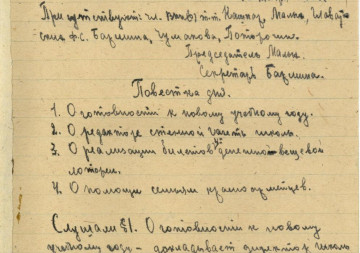 Присутствуют: чл. т.т. Кашкар, Малка, Глават-
ских ф.с. Бахмина, Чумакова, Поторочин.
Председатель Малка.
Секретарь Бахмина.
Повестка дня.
1. О готовности к новому учебному году.
2. О редакторе стенной газеты школы.
3. О реализации билетов 4й денежно-вещевой
лотереи.
4. О помощи семьям красноармейцев.
Слушали §1. О готовности к новому
учебному году - докладывает директор школы